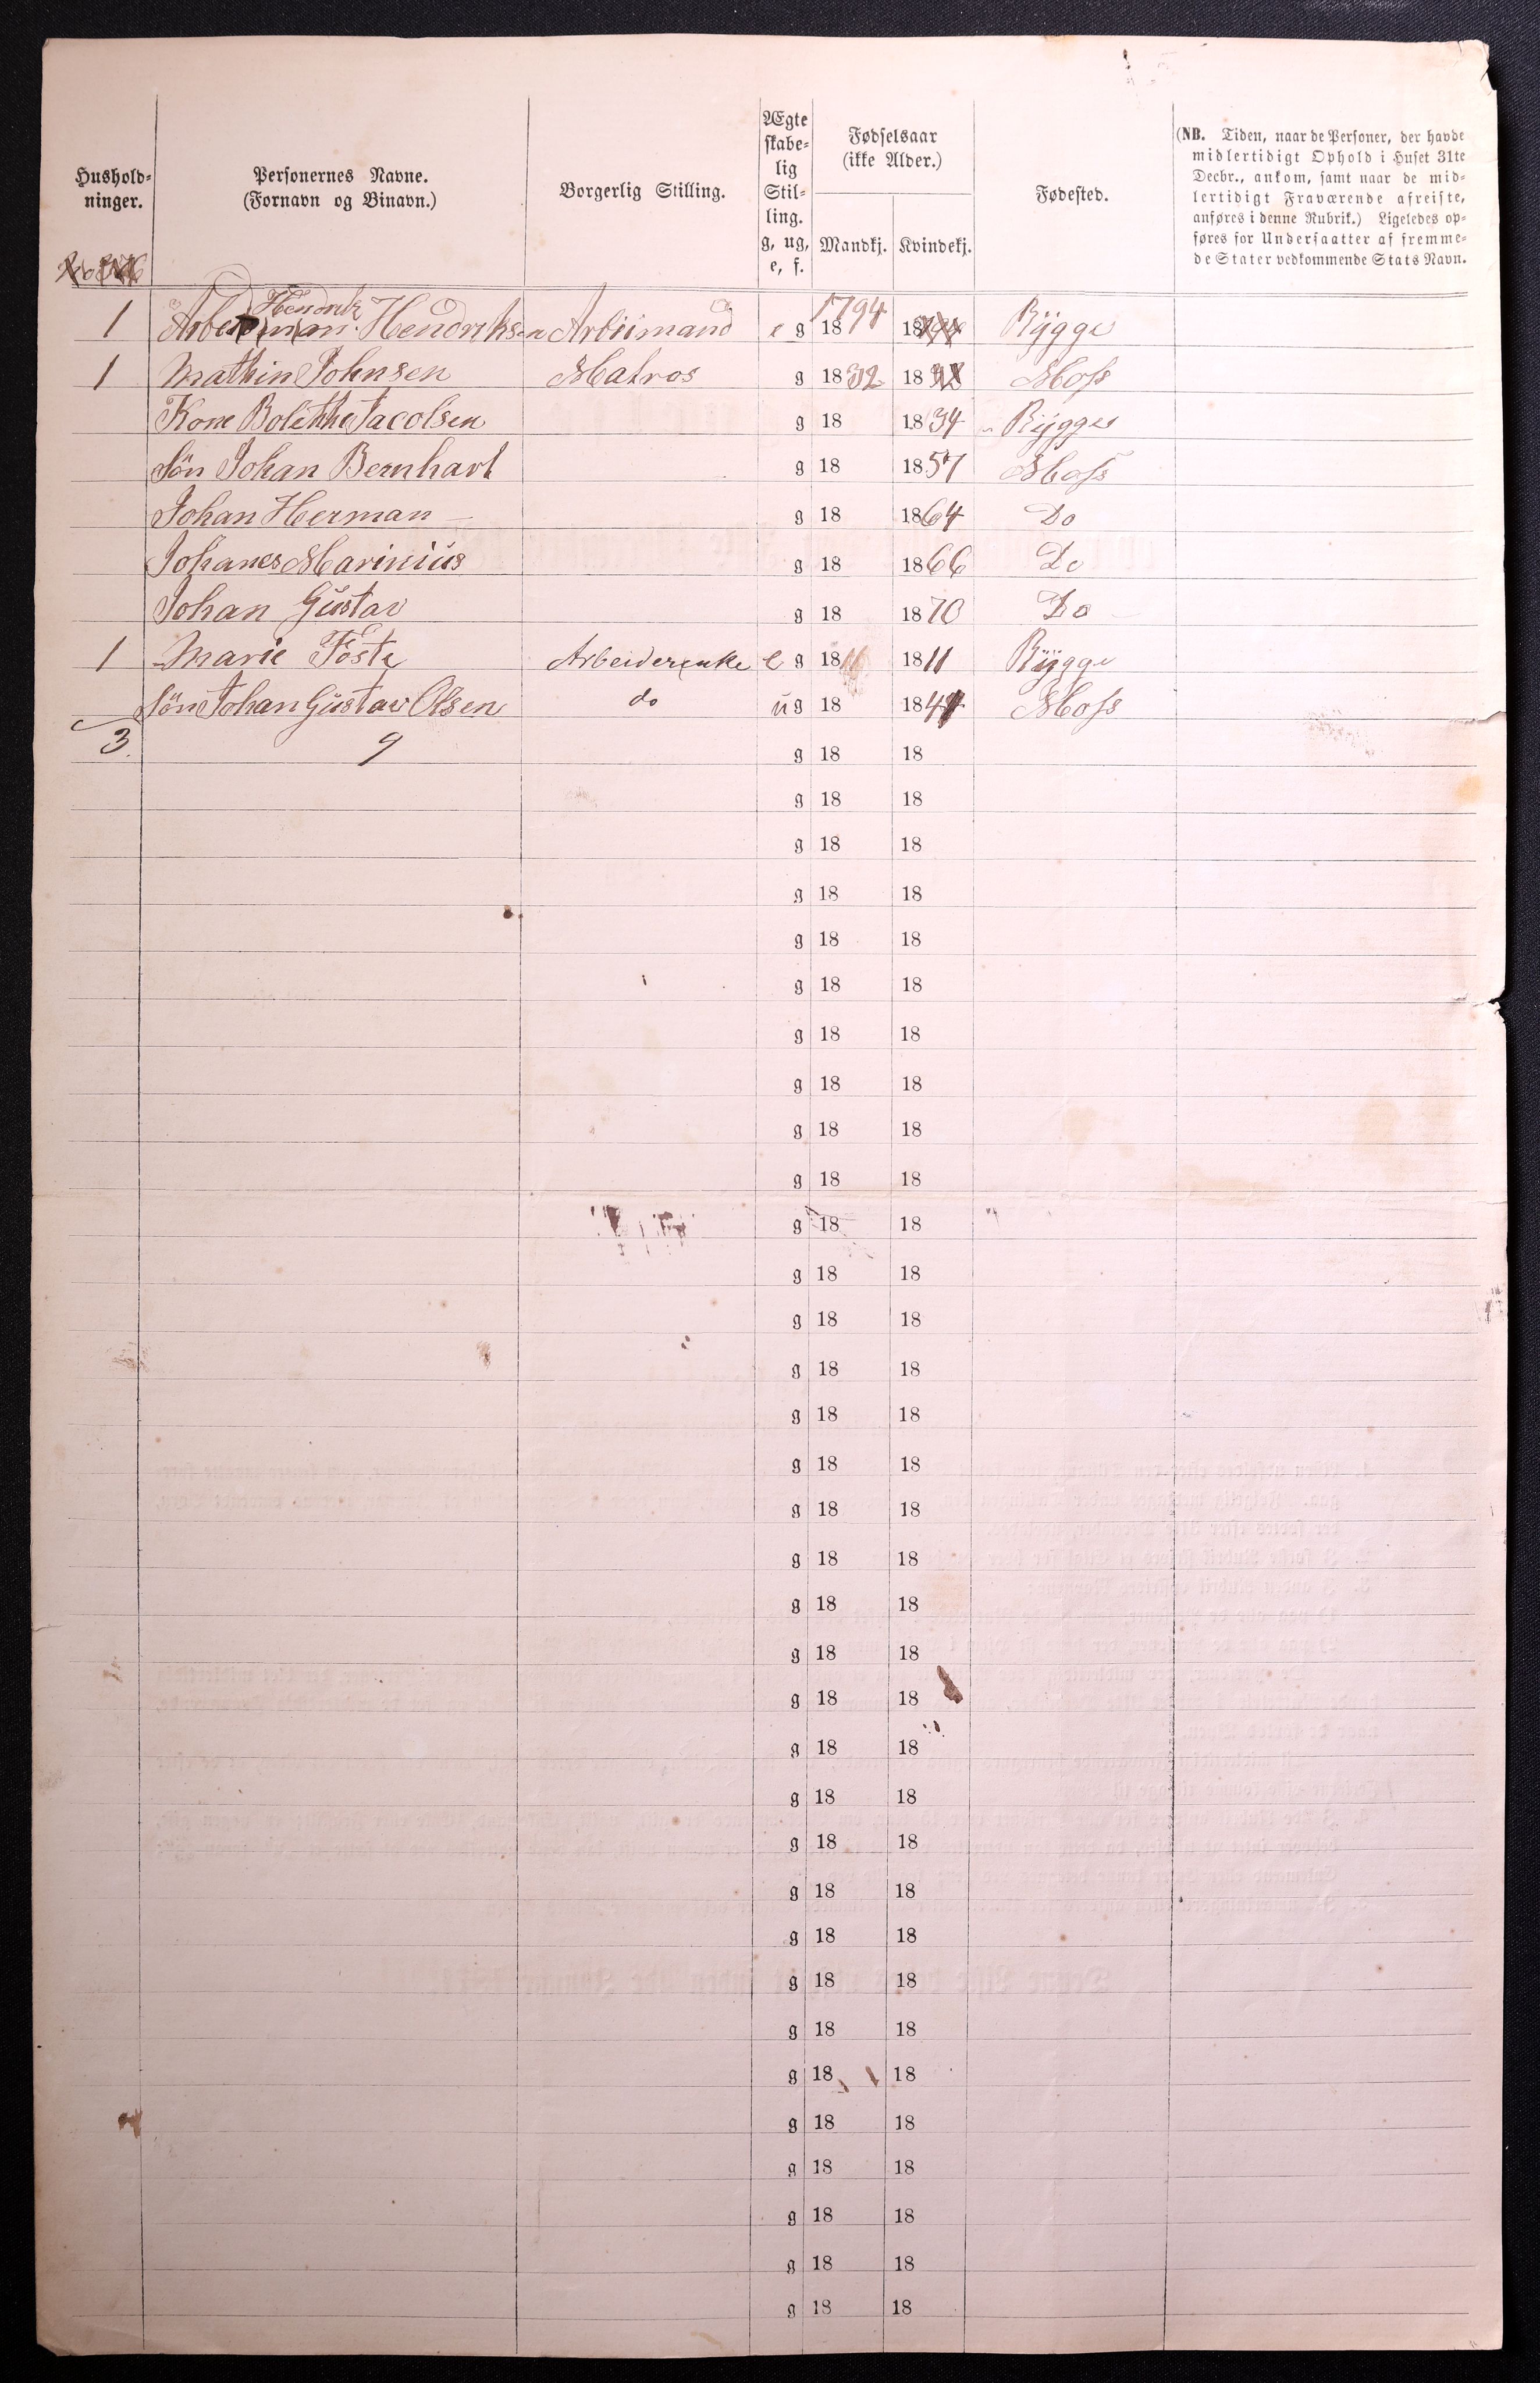 Hushold-
ninger.
Personernes Navne.
(Fornavn og Binavn.)
Borgerlig Stilling.
Ægte
skabe-
lig
Stil-
ling.
g, ug,
e, f.
Fødselsaar
(ikke Alder.)
Mandkj. Kvindekj.
Fødested.
(NB. Tiden, naar de Personer, der havde
midlertidigt Ophold i Huset 31te
Decbr., ankom, samt naar de mid-
lertidigt Fraværende afreiste,
anføres i denne Rubrik.) Ligeledes op-
føres for Undersaatter af fremme-
de Stater vedkommende Stats Navn.
Hendrik
1 Hendriksen Arbiimand e g 1794 18 Rÿgge
1 Mathin Johnsen Matros g 1832 18 Moss
Kone Bolethe Jacobsen g 18 1834 Rÿgge
Sön Johan Bernhart g 18 1857 Moss
Johan Herman g 18 1864 Do
Johanes Marinius g 18 1866 Do
Johan Gustav g 18 1870 Do
1 Marie Foste Arbeiderenke e g 18 1811 Rÿgge
Sön Johan Gustav Olsen do u g 18 184 Moss
3. 9 g 18 18
g 18 18
g 18 18
g 18 18
g 18 18
g 18 18
g 18 18
g 18 18
g 18 18
g 18 18
g 18 18
g 18 18
g 18 18
g 18 18
g 18 18
g 18 18
g 18 18
g 18 18
g 18 18
g 18 18
g 18 18
g 18 18
g 18 18
g 18 18
g 18 18
g 18 18
g 18 18
g 18 18
g 18 18
g 18 18
g 18 18
g 18 18
g 18 18
g 18 18